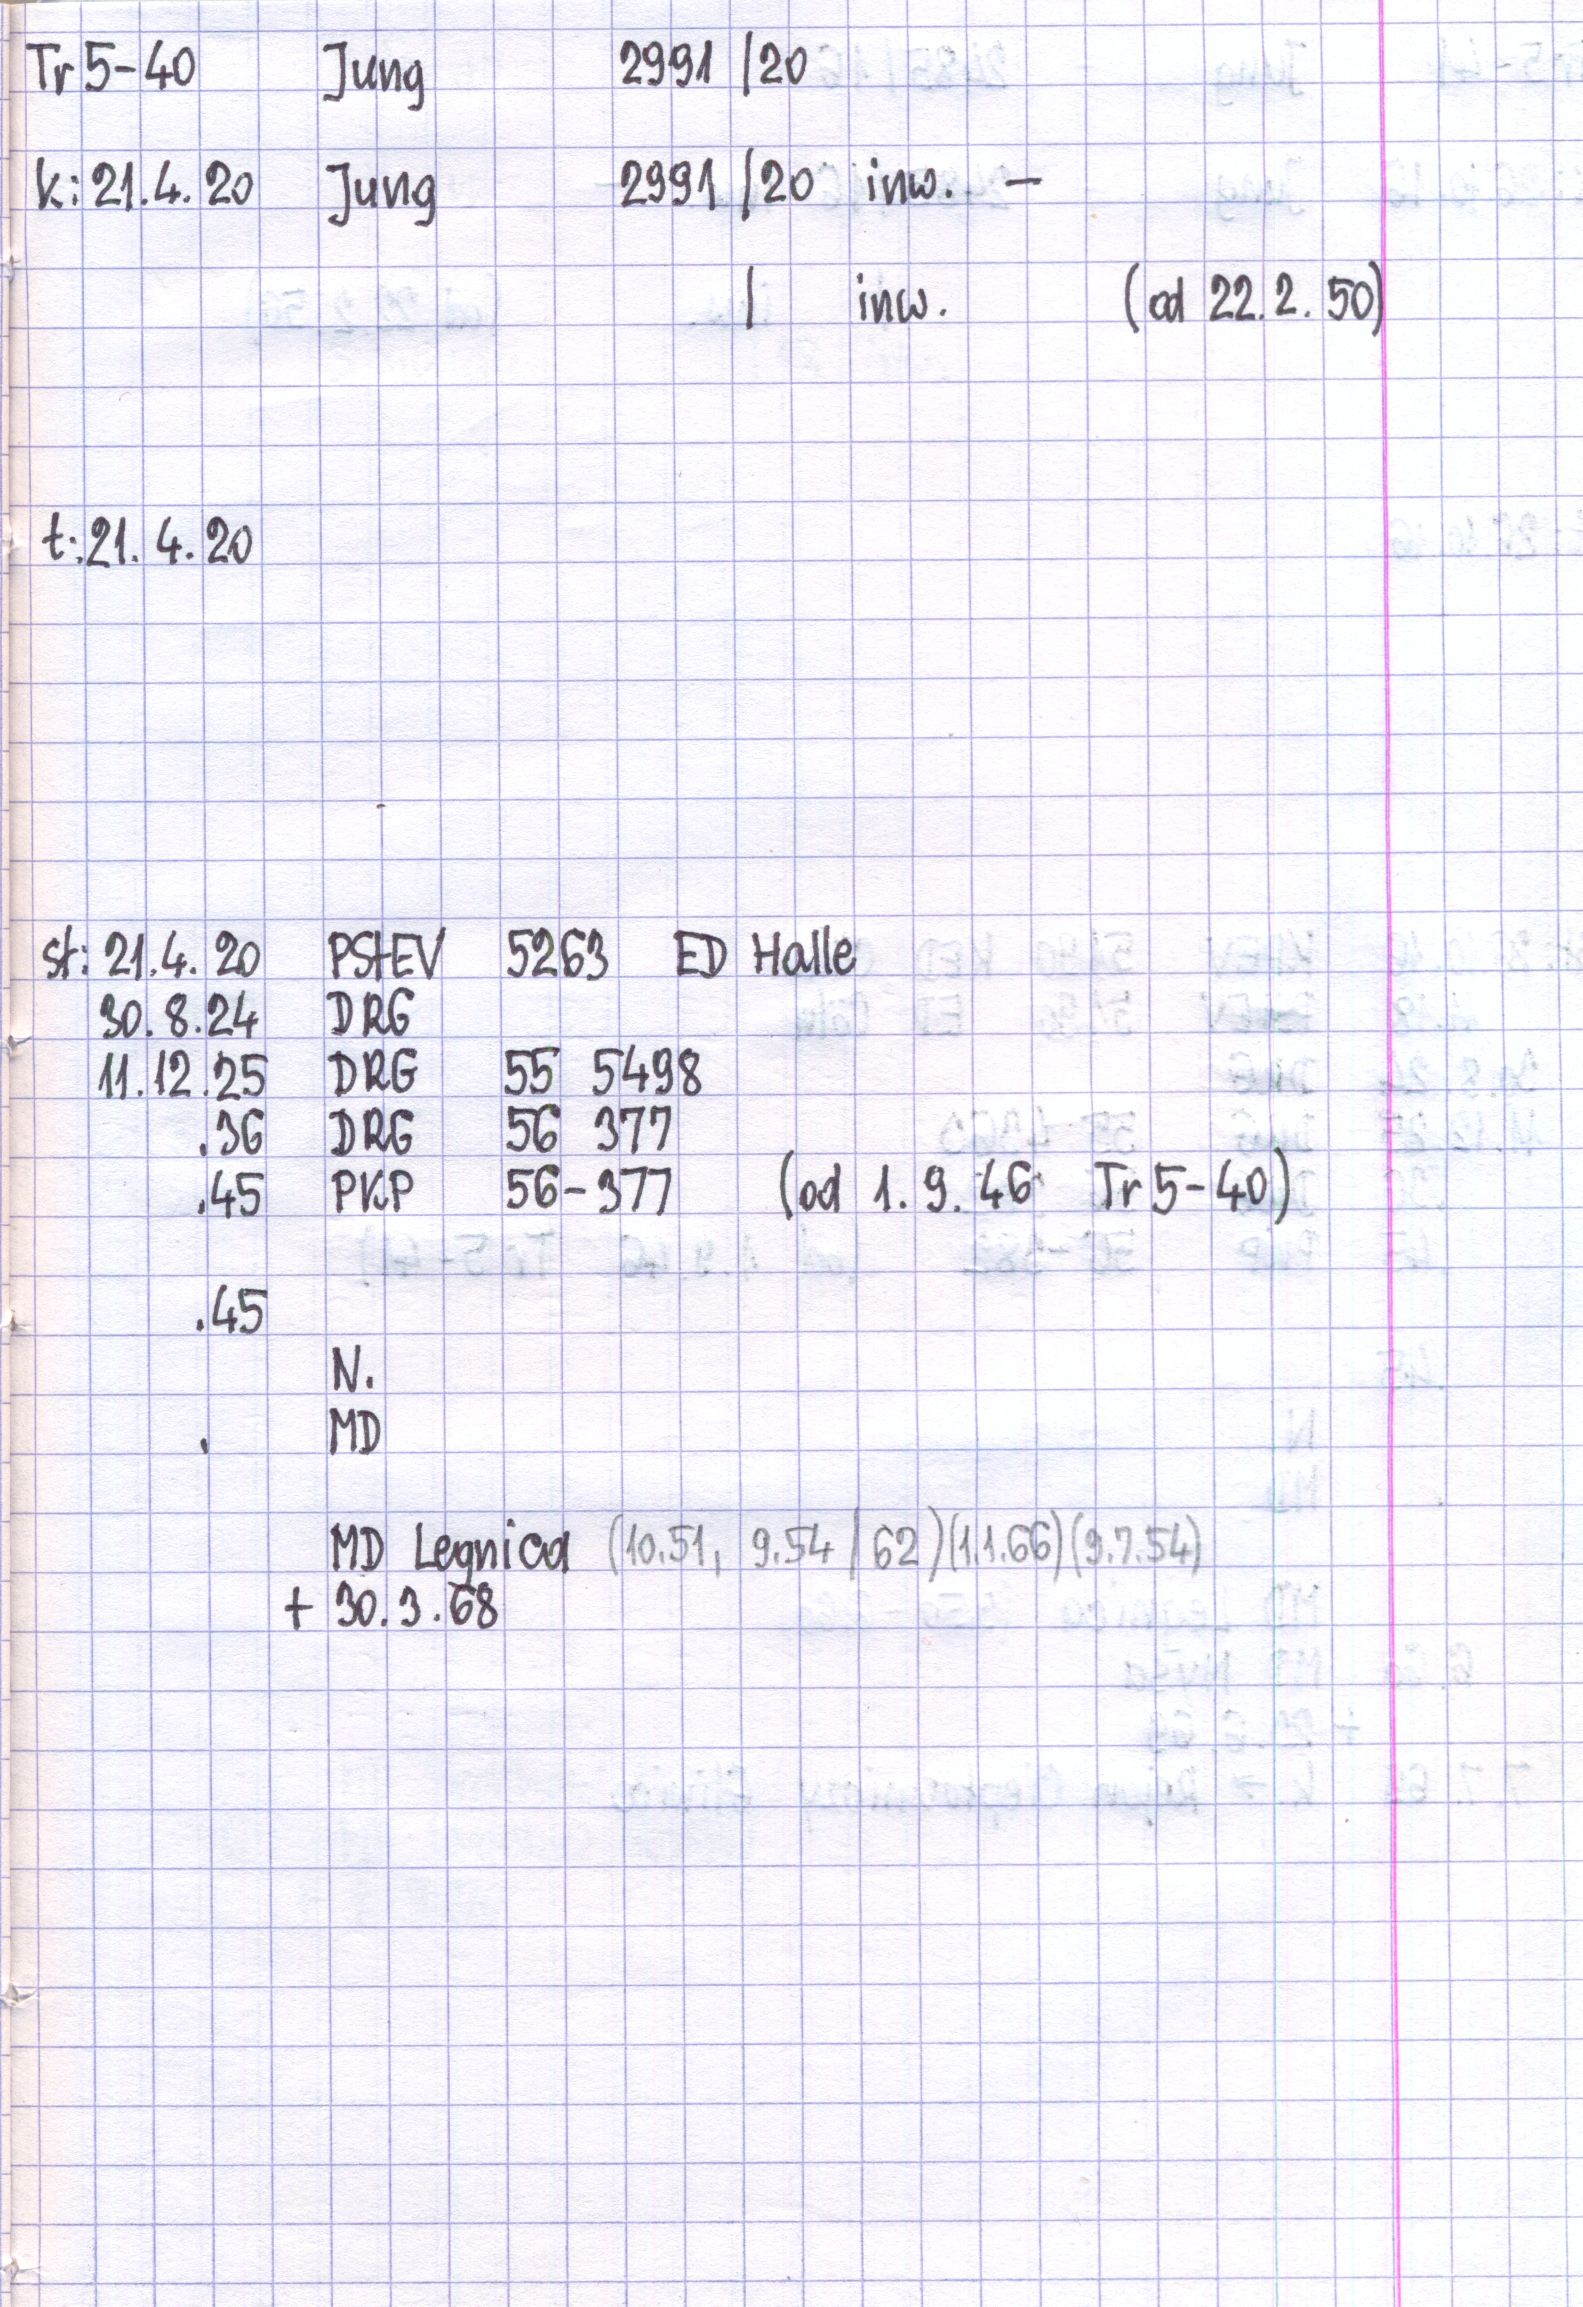 Tr 5-40 Jung 2991 /20
k: 21.4.20 Jung 2991 /20 inw. -
/ inw. (od 22.2.50)
t: 21.4.20
st: 21.4.20 PStEV 5263 ED Halle
30.8.24 DRG
11.12.25 DRG 55 5498
.36 DRG 56 377
.45 PKP 56-377 (od 1.9.46 Tr 5-40)
.45
N.
. MD
MD Legnica (10.51, 9.54 / 62) (1.1.66) (9.7.54)
+ 30.3.68